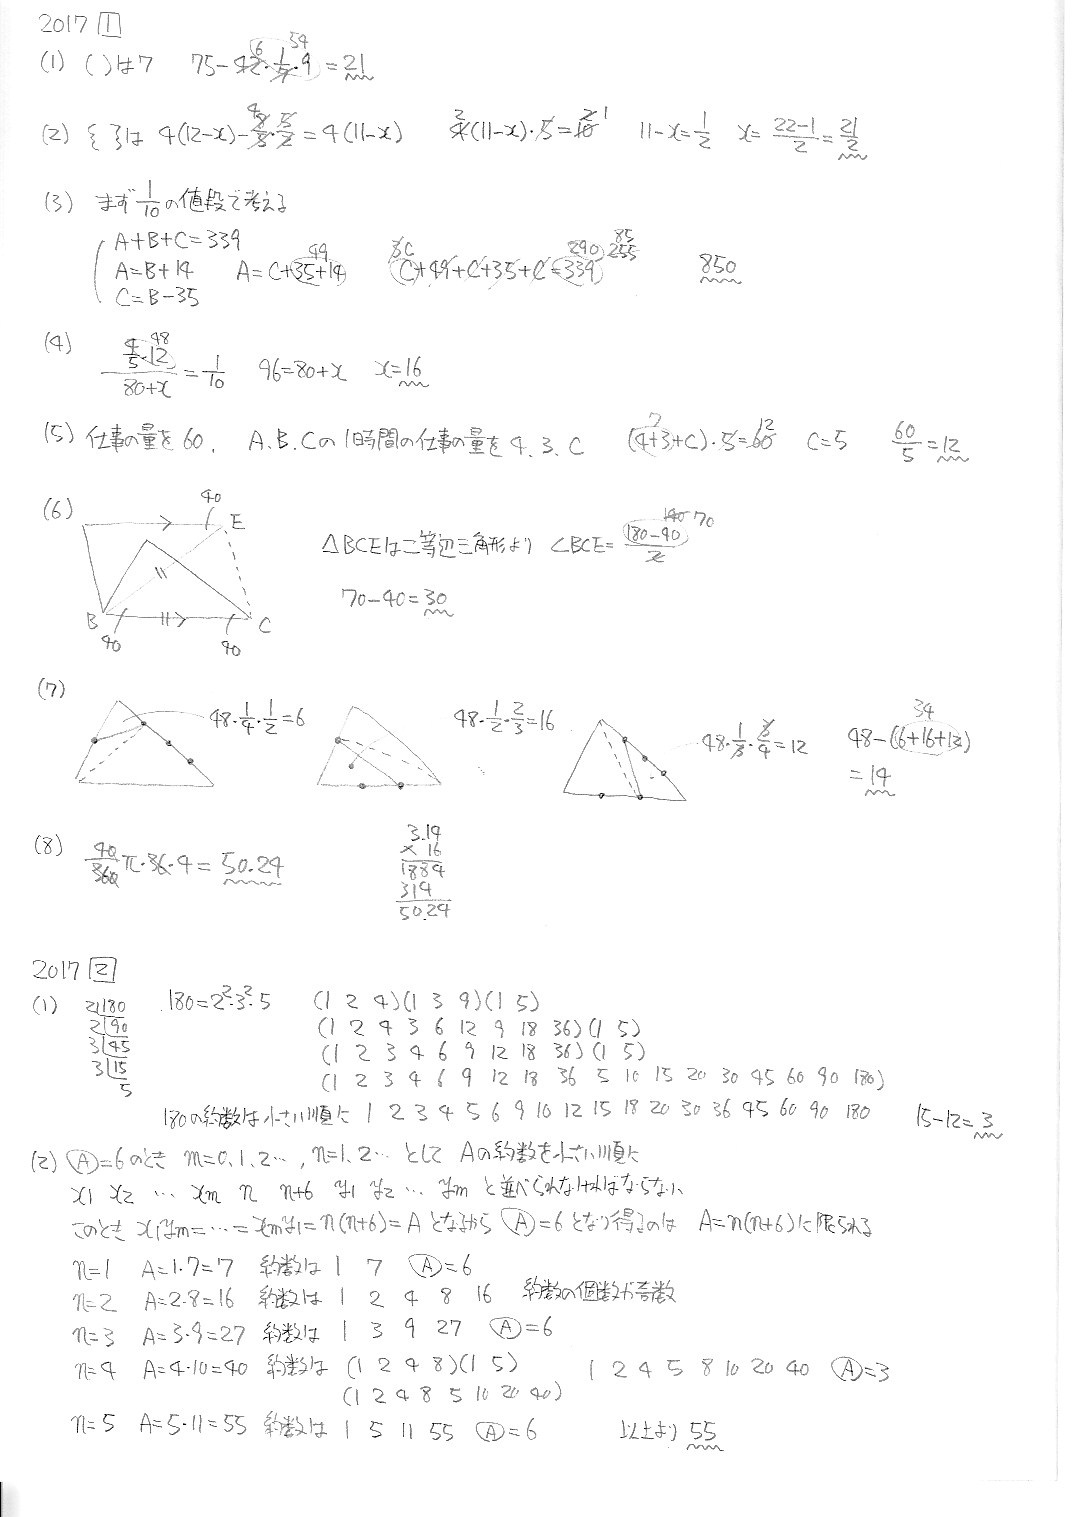 2017 1
(1) ( )は7 75-42·1/7·9=21 6 54
(2) { }は 4(12-x)-8/5·5/2=4(11-x) 4 2 4(11-x)·5=10 2 1 11-x=1/2 x=22-1/2=21/2
(3) まず1/10の値段で考える
A+B+C=339
A=B+14 A=C+35+14 49 3C C+49+C+35+C=339 290 255 85 850
C=B-35
(4) 4/5·12/80+x=1/10 48 96=80+x x=16
(5) 仕事の量を60, A、B、Cの1時間の仕事の量を4、3、C (4+3+C)·5=60 7 12 C=5 60/5=12
(6) 40 E △BCEは二等辺三角形より ∠BCE=180-40/2 140 70
70-40=30
B C 40 40
(7) 48·1/4·1/2=6 48·1/2·2/3=16 48·1/3·3/4=12 48-(6+16+12) 34
=14
(8) 40/360 π·36·4=50.24
3.14
×16
1884
314
50.24
2017 2
(1) 2 180 180=2²·3²·5 (1 2 4)(1 3 9)(1 5)
2 90 (1 2 4 3 6 12 9 18 36)(1 5)
3 45 (1 2 3 4 6 9 12 18 36)(1 5)
3 15 (1 2 3 4 6 9 12 18 36 5 10 15 20 30 45 60 90 180)
5
180の約数は小さい順に 1 2 3 4 5 6 9 10 12 15 18 20 30 36 45 60 90 180 15-12=3
(2) Ⓐ=6のとき m=0、1、2…, n=1、2… として Aの約数を小さい順に
x1 x2 … xm n n+6 y1 y2 … ym と並べられなければならない
このとき x1ym=…=xmy1=n(n+6)=A となるから Ⓐ=6となり得るのは A=n(n+6)に限られる
n=1 A=1·7=7 約数は 1 7 Ⓐ=6
n=2 A=2·8=16 約数は 1 2 4 8 16 約数の個数が奇数
n=3 A=3·9=27 約数は 1 3 9 27 Ⓐ=6
n=4 A=4·10=40 約数は (1 2 4 8)(1 5) 1 2 4 5 8 10 20 40 Ⓐ=3
(1 2 4 8 5 10 20 40)
n=5 A=5·11=55 約数は 1 5 11 55 Ⓐ=6 以上より 55